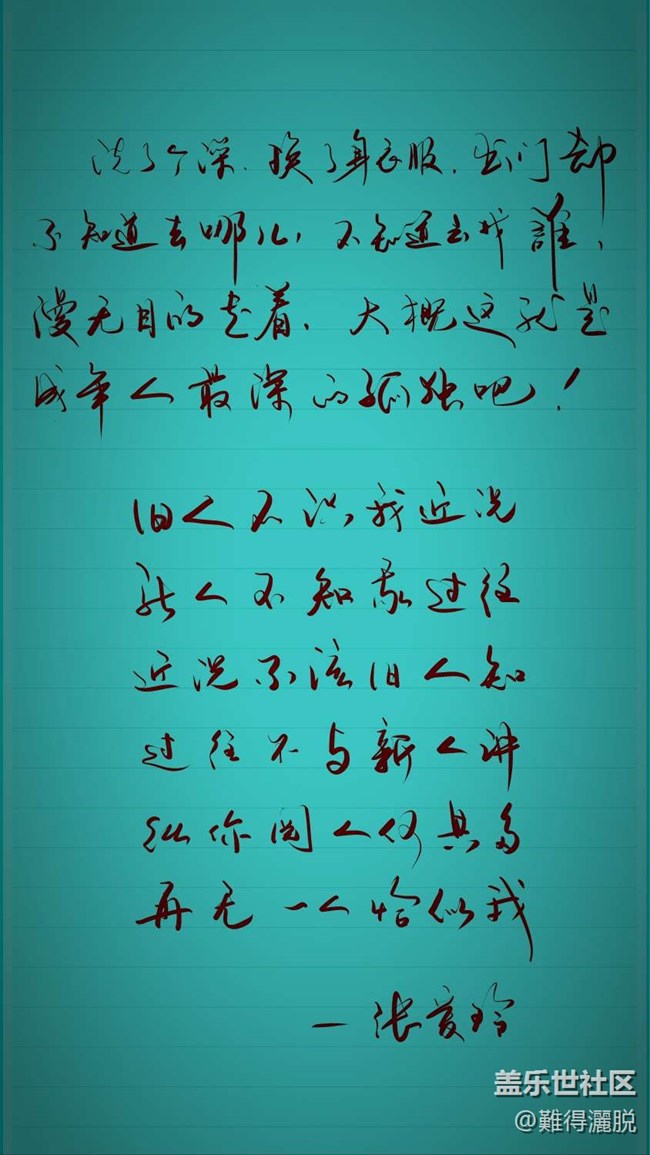 洗了个澡，换了身衣服，出门却
不知道去哪儿，不知道去找誰，
漫无目的走着，大概这就是
成年人最深的孤独吧！
旧人不识我近况
新人不知我过往
近况不该旧人知
过往不与新人讲
纵你阅人何其多
再无一人恰似我
—张爱玲
盖乐世社区
@難得灑脱